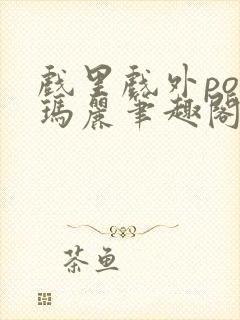 戲里戲外po
瑪麗筆趣閣
茶鱼